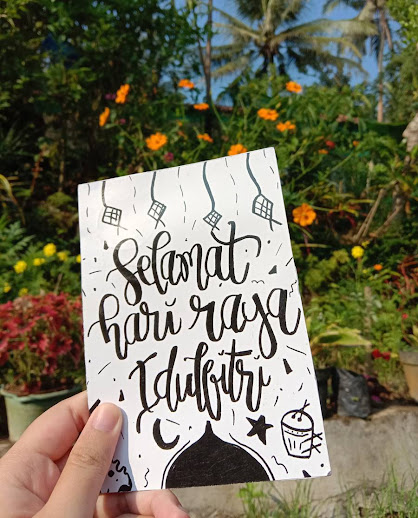 Selamat
hari raya
Idulfitri